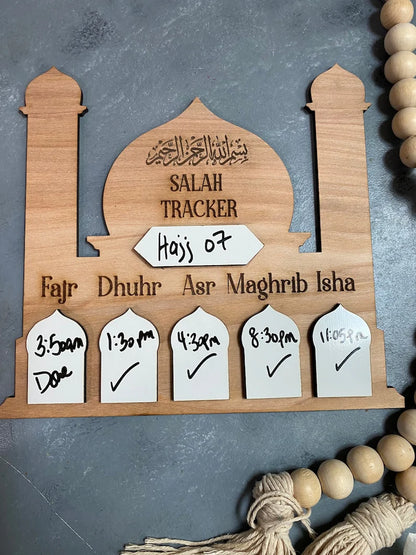 بسم الله الرحمن الرحيم
SALAH
TRACKER
Hajj 07
Fajr Dhuhr Asr Maghrib Isha
3:50am 1:30pm 4:30pm 8:30pm 11:05pm
Done ✓ ✓ ✓ ✓